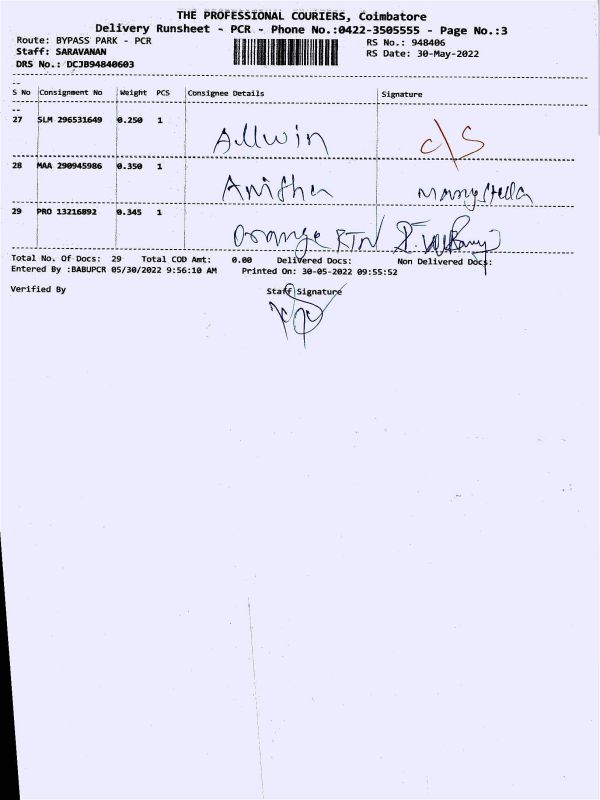 THE PROFESSIONAL COURIERS, Coimbatore
Delivery Runsheet - PCR - Phone No.:0422-3505555 - Page No.:3
Route: BYPASS PARK - PCR RS No.: 948406
Staff: SARAVANAN RS Date: 30-May-2022
DRS No.: DCJB94840603
S No Consignment No Weight PCS Consignee Details Signature
27 SLM 296531649 0.250 1 Allwin c/s
28 MAA 290945986 0.350 1 Anitha Mary Stella
29 PRO 13216892 0.345 1 Orange RTN
Total No. Of Docs: 29 Total COD Amt: 0.00 Delivered Docs: Non Delivered Docs:
Entered By :BABUPCR 05/30/2022 9:56:10 AM Printed On: 30-05-2022 09:55:52
Verified By Staff Signature